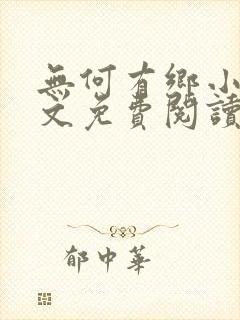 無何有鄉小
文免費閱讀
郁中華